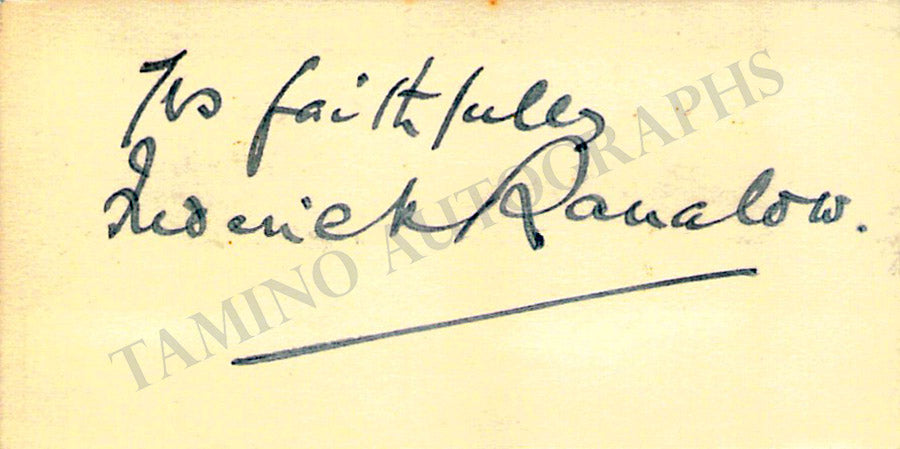 Yrs faithfully
Frederick Ranalow.
TAMINO AUTOGRAPHS